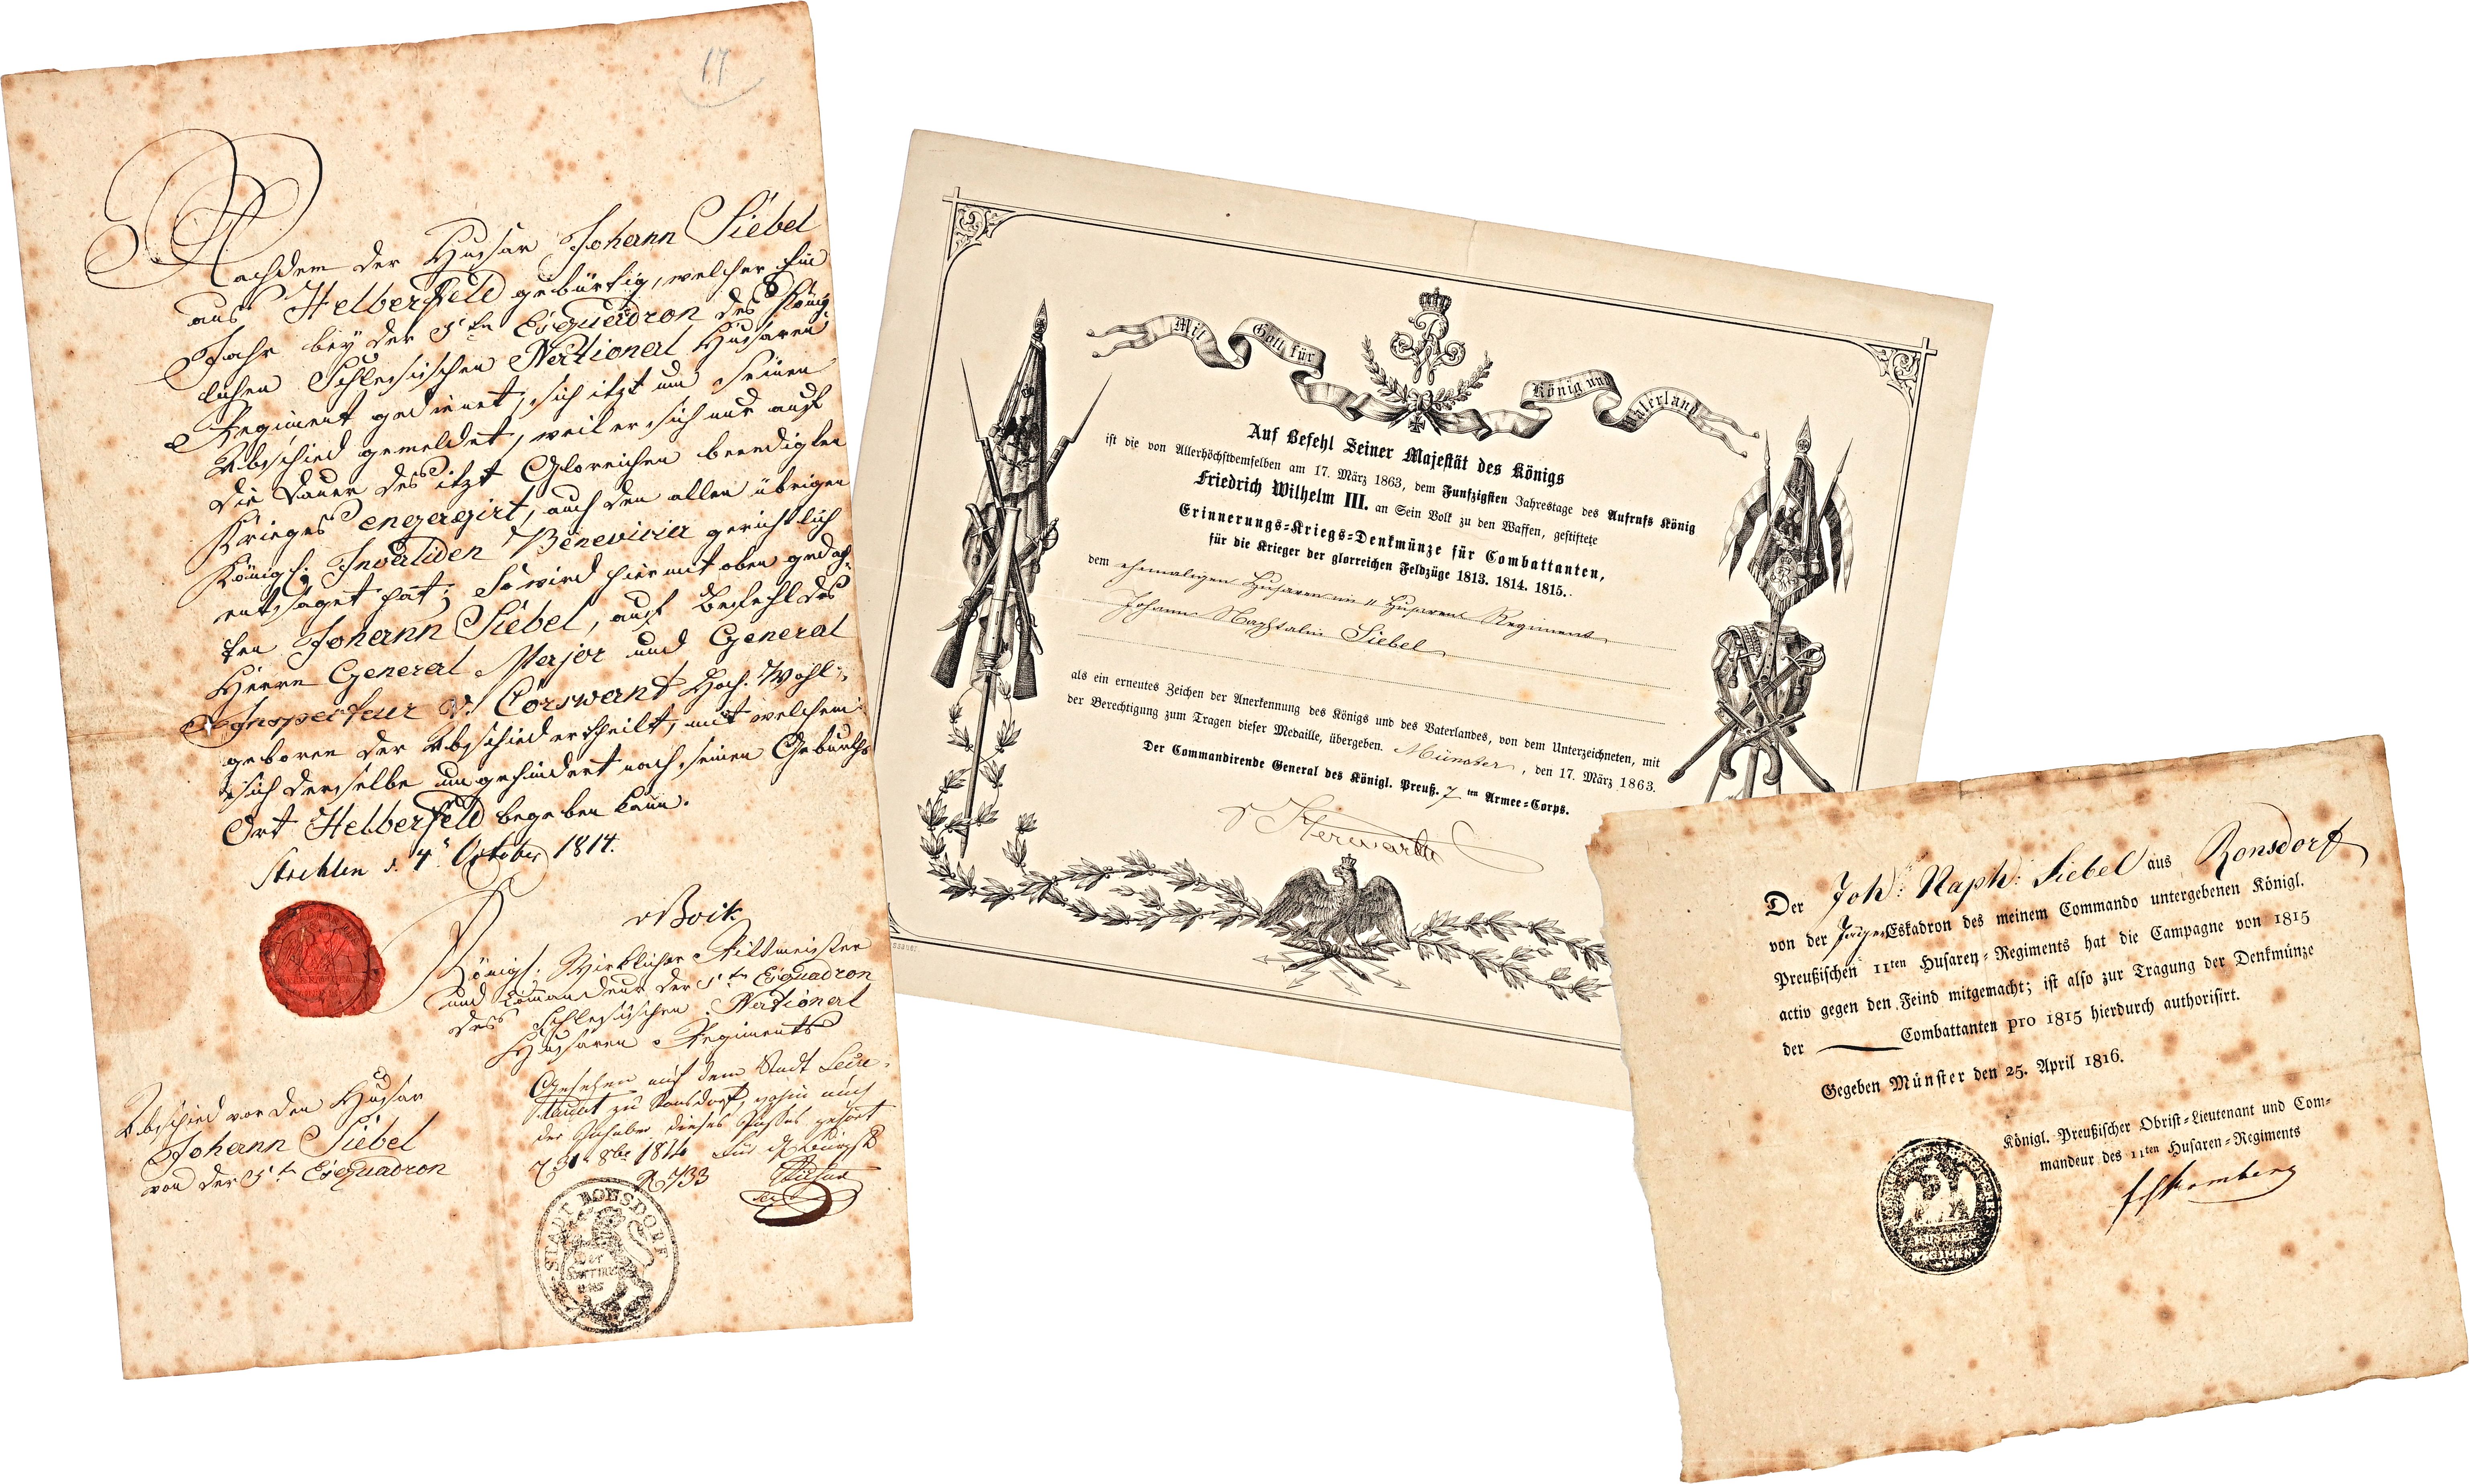 17
Nachdem der Husar Johann Siebel
aus Helberfeld gebürtig, welcher Ein
Jahr bey der 5ten Esquadron des König-
lichen Schlesischen National Husaren
Regiment gedienet, sich itzt um seinen
Abschied gemeldet, weil er sich nur auf
die Dauer des itzt Gloreichen beendigten
Krieges engagirt, auch den allen übrigen
Königl: Invaliden Beneficia gerichtlich
entsaget hat; So wird hiermit oben gedach-
ten Johann Siebel, auf Befehl des
Herrn General Major und General
Inspecteur v. Corswant Hoch-Wohl-
geboren der Abschied ertheilt, mit welchem
sich derselbe ungehindert nach seinen Geburths
Ort Helberfeld begeben kann.
Strehlen d. 4t October 1814.
Königl: Wirklicher Rittmeister
und Commandeur der 5t Esquadron
des Schlesischen National
Husaren Regiments
Abschied vor den Husar
Johann Siebel
von der 5t Esquadron
Gesehen auf dem Stadt Secre-
tariat zu Ronsdorf, wohin auch
der Inhaber dieses Passes gehört
d 31 8br 1814
STADT RONSDORF
Mit Gott für König und Vaterland
Auf Befehl Seiner Majestät des Königs
ist die von Allerhöchstdemselben am 17. März 1863, dem Funfzigsten Jahrestage des Aufrufs König
Friedrich Wilhelm III. an Sein Volk zu den Waffen, gestiftete
Erinnerungs-Kriegs-Denkmünze für Combattanten,
für die Krieger der glorreichen Feldzüge 1813. 1814. 1815.
dem ehemaligen Husaren im 11 Husaren Regiment
Johann Naphtalin Siebel
als ein erneutes Zeichen der Anerkennung des Königs und des Vaterlandes, von dem Unterzeichneten, mit
der Berechtigung zum Tragen dieser Medaille, übergeben. Münster, den 17. März 1863.
Der Commandirende General des Königl. Preuß. 7 ten Armee-Corps.
v Herwarth
Der Joh: Naph: Siebel aus Ronsdorf
von der Jäger Eskadron des meinem Commando untergebenen Königl.
Preußischen 11ten Husaren-Regiments hat die Campagne von 1815
activ gegen den Feind mitgemacht; ist also zur Tragung der Denkmünze
der Combattanten pro 1815 hierdurch authorisirt.
Gegeben Münster den 25. April 1816.
Königl. Preußischer Obrist-Lieutenant und Com-
mandeur des 11ten Husaren-Regiments
HUSAREN
REGIMENT